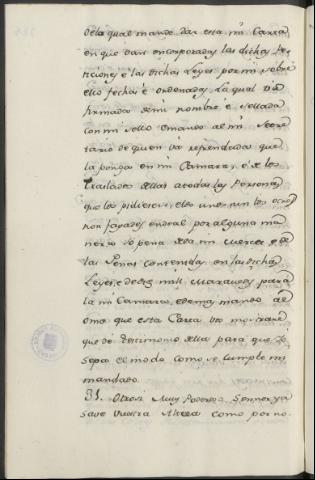 de la qual mando dar esta mi Carta
en que van encorporadas las dichas Pe-
ticiones, e las dichas Leyes por mi sobre
ello fechas e ordenadas, la qual va
firmada de mi nombre e sellada
con mi sello e mando al mi Secre-
tario de quien va refrendada que
la ponga en mi Camara, e dé los
traslados della a todas las Personas
que los pidieren, e los unos nin los otros
non fagades endeal por alguna ma-
nera so pena de la mi merced e de
las Penas contenidas en las dichas
Leyes, e de diez mil maravedis para
la mi Camara, e demas mando al
ome que esta Carta vos mostrare
que dé testimonio della para que Yo
sepa el modo como se cumple mi
mandado.
31. Otrosi Muy Poderoso Sennor ya
save Vuestra Alteza como por no